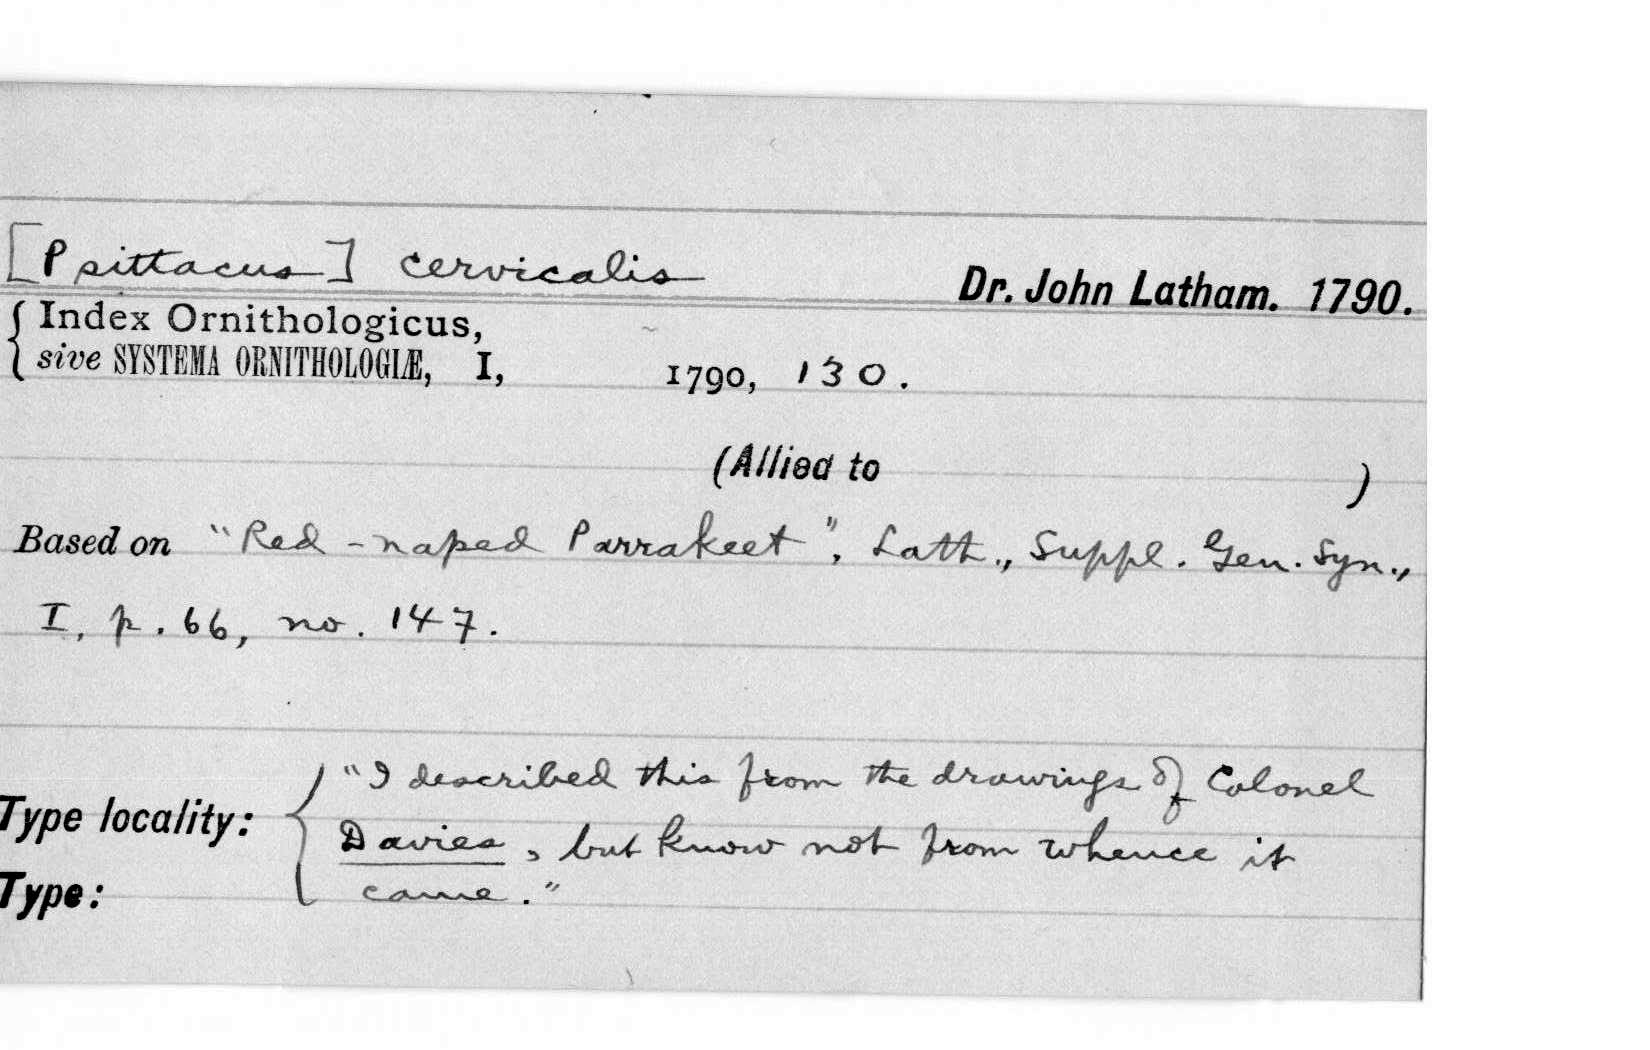 [Psittacus] cervicalis
Dr. John Latham. 1790.
{ Index Ornithologicus,
sive SYSTEMA ORNITHOLOGIÆ, I, 1790, 130.
(Allied to )
Based on "Red-naped Parrakeet", Lath., Suppl. Gen. Syn.,
I, p. 66, no. 147.
"I described this from the drawings of Colonel
Type locality: { Davies, but know not from whence it
Type: came."